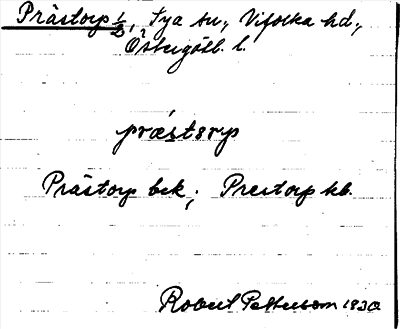 Prästorp 1/2, Sya sn, Vifolka hd,
Östergötl. l.
præstorp
Prästorp bek; Prestorp kb.
Robert Pettersson 1930